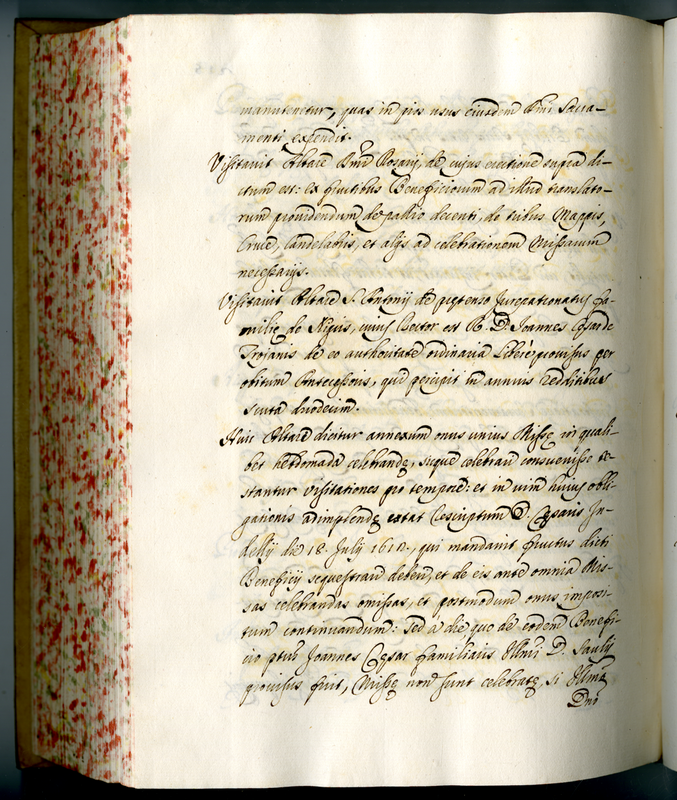 manutenetur, quas in pios usus eiusdem Smi Sacra-
menti expendit.
Visitavit Altare Smi Rosarij, de cujus erectione supra di-
ctum est: ex fructibus Beneficiorum ad illud translato-
rum providendum de pallio decenti, de tribus Mappis,
Cruce, Candelabris, et alijs ad celebrationem Missarum
necessarijs.
Visitavit Altare S. Antonij de pretenso Jurepatronatus fa-
milie de Nigris, cuius Rector est R. D. Joannes Cesar de
Trojanis de eo authoritate ordinaria liberè provisus per
obitum Antecessoris, qui percipit in annuis redditibus
scuta duodecim.
Huic Altare dicitur annexum onus unius Misse in quali-
bet hebdomada celebrande, sicque celebrari consuevisse te-
stantur visitationes pro tempore: et in vim huius obli-
gationis adimplende extat Rescriptum D. Cesaris In-
dellij die 18 Julij 1610., qui mandavit fructus dicti
Beneficij sequestrari debere, et de eis ante omnia Mis-
sas celebrandas omissas, et postmodum onus imposi-
tum continuandum: sed à die quo de eodem Benefi-
cio ptus Joannes Cesar familiaris Illmi D. Saulij
provisus fuit, Misse non sunt celebrate, si Illmo
Dno